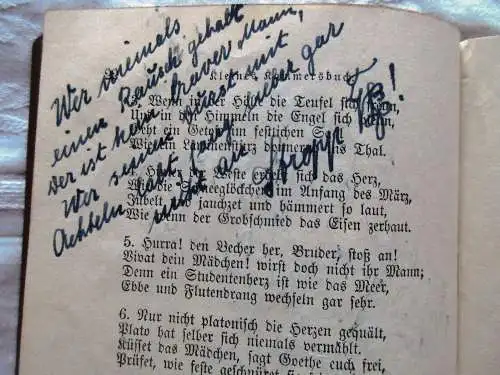 Wer niemals
einen Rausch gehabt
der ist kein braver Mann,
Wer seinen Durst mit
Achteln labt fang lieber gar
nicht an
Kleines Kommersbuch
3. Wenn in der Hölle die Teufel sich
Und in den Himmeln die Engel sich
Weht ein im festlichen
Wie donnernd ins Thal.
4. Hinter der Weste sich das Herz,
Wie die Schneeglöckchen im Anfang des März,
Jubelt und jauchzet und hämmert so laut,
Wie wenn der Grobschmied das Eisen zerhaut.
5. Hurra! den Becher her, Bruder, stoß an!
Vivat dein Mädchen! wirst doch nicht ihr Mann;
Denn ein Studentenherz ist wie das Meer,
Ebbe und Flutendrang wechseln gar sehr.
6. Nur nicht platonisch die Herzen gequält,
Plato hat selber sich niemals vermählt.
Küsset das Mädchen, sagt Goethe euch frei,
Prüfet, wie feste geschnürt